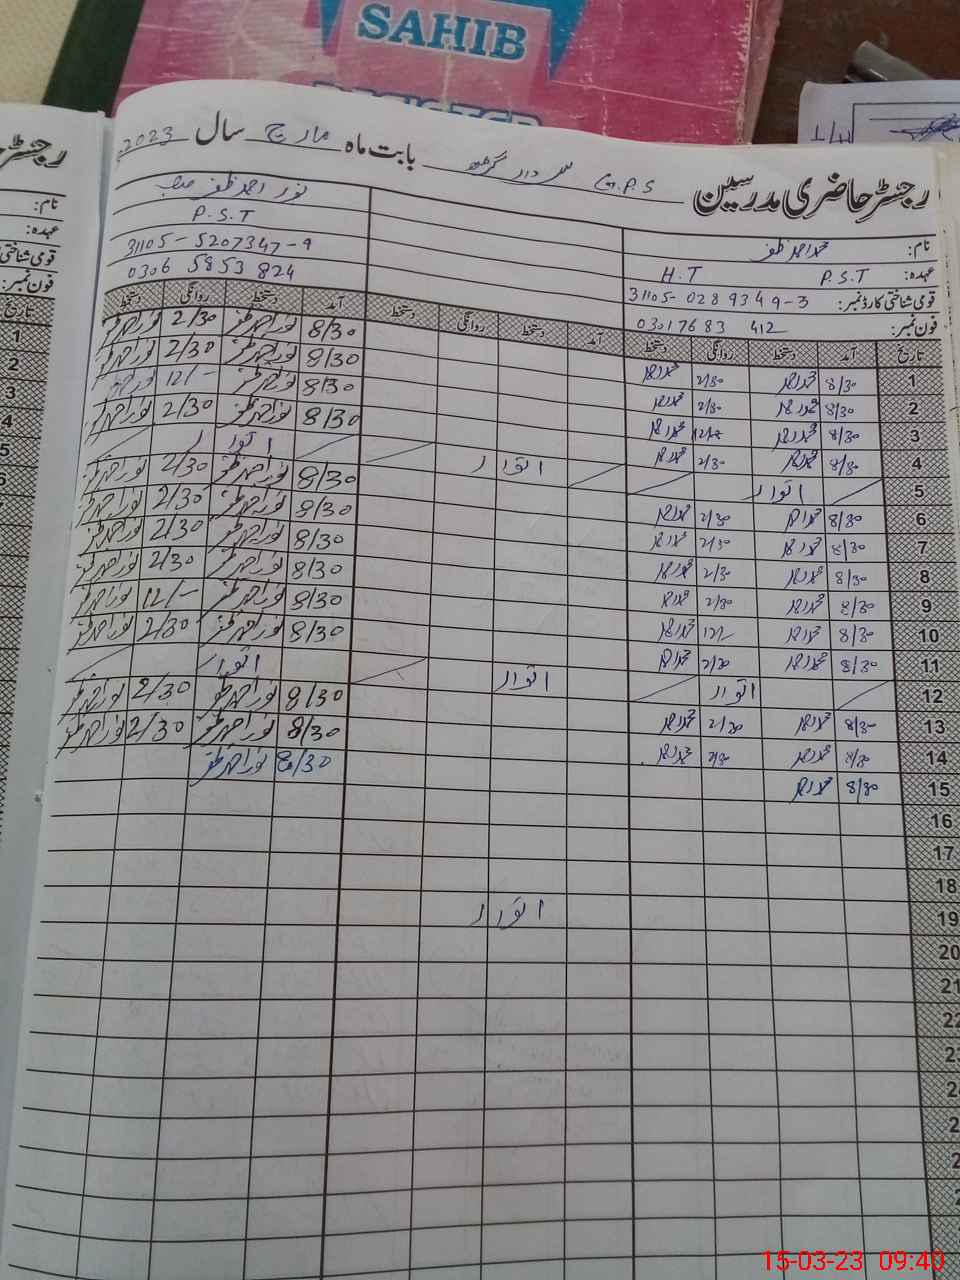 SAHIB
REGISTER
رجسٹر حاضری مدرسین G.P.S سردار گڑھ بابت ماہ مارچ سال 2023
نام: محمد احمد ظفر
عہدہ: P.S.T H.T
قومی شناختی کارڈ نمبر: 31105-0289349-3
فون نمبر: 03017683 412
نور احمد ظفر صاحب
P.S.T
31105-5207347-9
0306 5853 824
تاریخ آمد دستخط روانگی دستخط آمد دستخط روانگی دستخط آمد دستخط روانگی دستخط
1 8/30 محمد احمد 2/30 محمد احمد 8/30 نور احمد ظفر 2/30 نور احمد ظفر
2 8/30 محمد احمد 2/30 محمد احمد 8/30 نور احمد ظفر 2/30 نور احمد ظفر
3 8/30 محمد احمد محمد احمد 8/30 نور احمد ظفر 12/- نور احمد ظفر
4 8/30 محمد احمد 2/30 محمد احمد 8/30 نور احمد ظفر 2/30 نور احمد ظفر
5 اتوار اتوار اتوار
6 8/30 محمد احمد 2/30 محمد احمد 8/30 نور احمد ظفر 2/30 نور احمد ظفر
7 8/30 محمد احمد 2/30 محمد احمد 8/30 نور احمد ظفر 2/30 نور احمد ظفر
8 8/30 محمد احمد 2/30 محمد احمد 8/30 نور احمد ظفر 2/30 نور احمد ظفر
9 8/30 محمد احمد 2/30 محمد احمد 8/30 نور احمد ظفر 2/30 نور احمد ظفر
10 8/30 محمد احمد 12/- محمد احمد 8/30 نور احمد ظفر 12/- نور احمد ظفر
11 8/30 محمد احمد 2/30 محمد احمد 8/30 نور احمد ظفر 2/30 نور احمد ظفر
12 اتوار اتوار اتوار
13 8/30 محمد احمد 2/30 محمد احمد 8/30 نور احمد ظفر 2/30 نور احمد ظفر
14 8/30 محمد احمد 2/30 محمد احمد 8/30 نور احمد ظفر 2/30 نور احمد ظفر
15 8/30 محمد احمد 8/30 نور احمد ظفر
16
17
18
19 اتوار
20
21
22
23
رجسٹر
نام:
عہدہ:
قومی شناختی
فون نمبر:
تاریخ
1
2
3
4
5
15-03-23 09:40